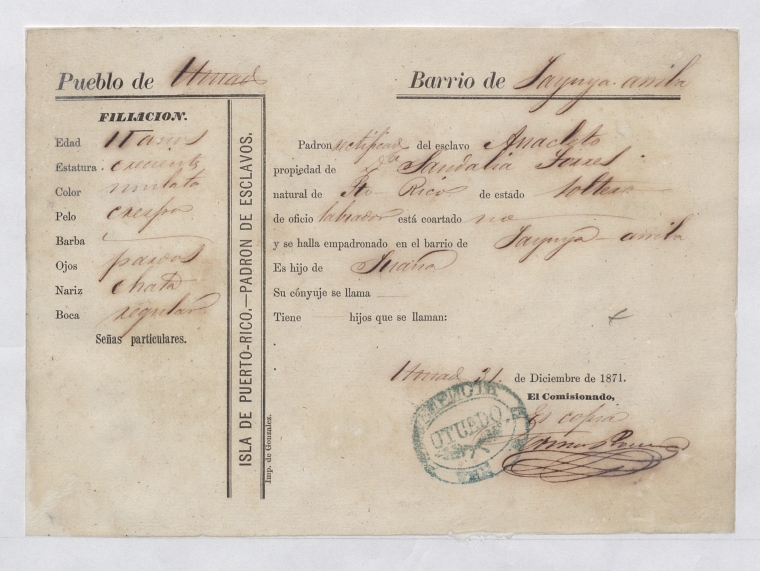 Pueblo de Utuado
Barrio de Jayuya arriba
FILIACION.
Edad 11 años
Estatura creciente
Color mulato
Pelo crespo
Barba
Ojos pardos
Nariz chata
Boca regular
Señas particulares.
ISLA DE PUERTO-RICO.—PADRON DE ESCLAVOS.
Imp. de Gonzalez.
Padron rectificado del esclavo Anacleto
propiedad de Sandalia Torres
natural de Pto Rico de estado soltero
de oficio labrador está coartado no
y se halla empadronado en el barrio de Jayuya arriba
Es hijo de Juana
Su cónyuje se llama
Tiene hijos que se llaman:
Utuado 31 de Diciembre de 1871.
El Comisionado,
Es copia
UTUADO